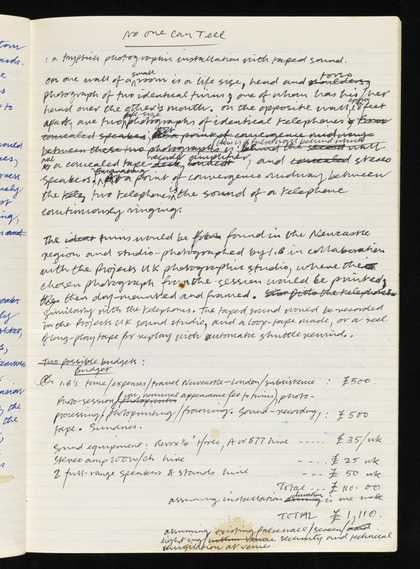 No One Can Tell
: a triptych photographic installation with taped sound.
On one wall of a small room is a life size, head and torso
photograph of two identical twins, one of whom has his/her
hand over the other's mouth. On the opposite wall, 8 feet
apart, are two full-size photographs of identical telephones
concealed speakers, point of convergence midway
between these two photographs is behind the second wall
is a concealed tape deck amplifier, and concealed stereo
speakers. At a point of convergence midway between
the two telephones is the sound of a telephone
continuously ringing.
The twins would be found in the Newcastle
region and studio-photographed by in collaboration
with the Projects UK photographic studio, where the
chosen photograph from the session would be printed,
then dry-mounted and framed.
Similarly with the telephones. The taped sound would be recorded
in the Projects UK sound studio, and a loop-tape made, or a reel
long-play tape for replay with automatic shuttle rewind.
Two possible budgets:
budget
time/expenses/travel Newcastle-London/subsistence : £500
Photo-session (inc. nominal appearance fee to twins), photo-
processing/photoprinting/framing. Sound-recording, : £500
tape. Sundries.
Sound equipment: Revox hire ---- £35/wk
Stereo amp 100W/ch hire ---- £25 wk
2 full-range speakers & stands hire -- £50 wk
Total --- £110.00
assuming installation duration is one week
TOTAL £1,110.
assuming existing
lighting security and technical
invigilation at venue